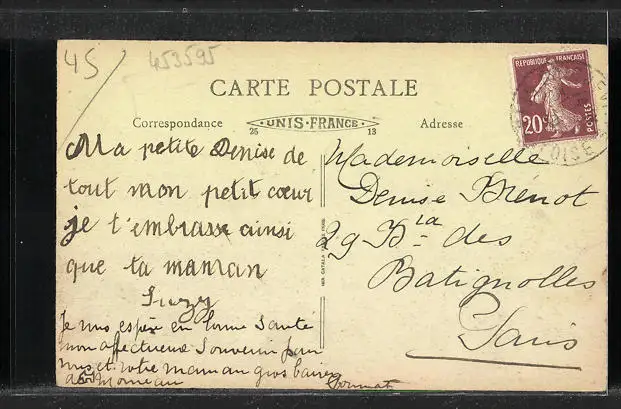 45
453595
CARTE POSTALE
Correspondance
UNIS-FRANCE
25
13
Adresse
REPUBLIQUE FRANÇAISE
20c
POSTES
OISE
Ma petite Denise de
tout mon petit cœur
je t'embrasse ainsi
que ta maman
Suzy
Je vous espère en bonne santé
mon affectueux souvenir pour
vous et votre maman gros baisers
Mademoiselle
Denise
29 Bd des
Batignolles
Paris